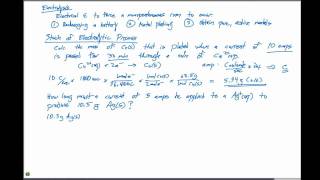 Electrolysis
Electrical E to force a nonspontaneous rxn to occur.
① Recharging a battery ② Metal plating ③ Obtain pure, active metals
Stoich of Electrolytic Process
Calc the mass of Cu(s) that is plated when a current of 10 amps
is passed for 30 min through a soln of Cu²⁺(aq)
Cu²⁺(aq) + 2e⁻ → Cu(s) amp = Coulomb/sec ⇒ C/s
10. C/s 1800 sec 1 mol e⁻ 1 mol Cu(s) 63.5g = 5.94g Cu(s)
How long must a current of 5 amps be applied to a Ag⁺(aq) to
produce 10.5 g Ag(s) ?
10.5g Ag(s)